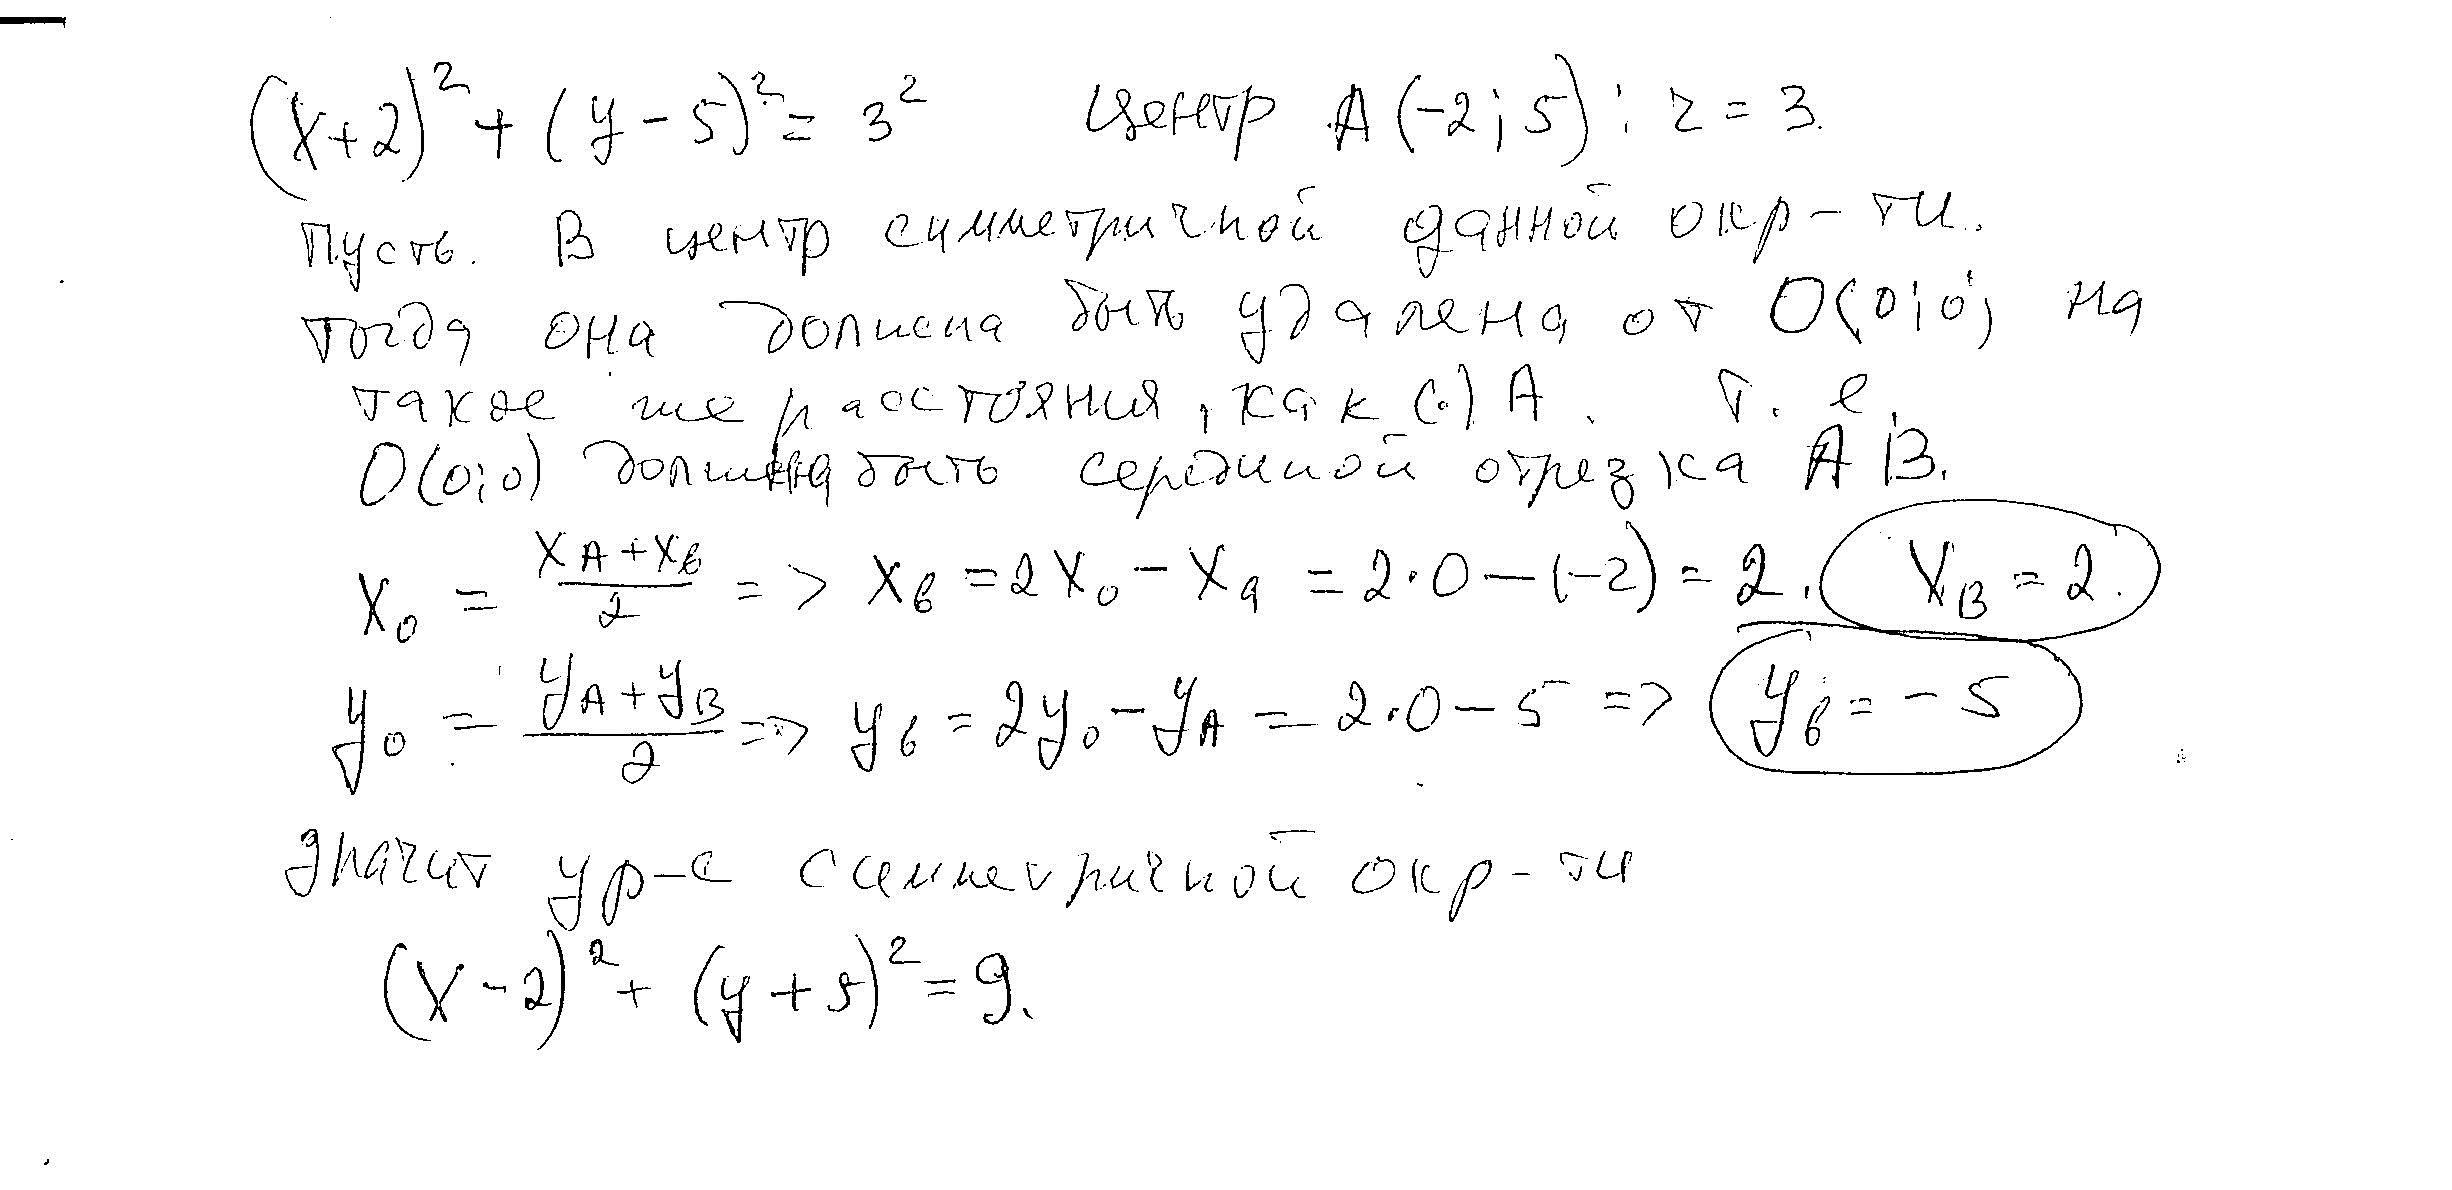 (x+2)² + (y-5)² = 3² центр A(-2;5); r = 3.
Пусть. B центр симметричной данной окр-ти.
тогда она должна быть удалена от O(0;0) на
такое же расстояния, как (.) A. т. е.
O(0;0) должна быть серединой отрезка AB.
x₀ = (x_A + x_в)/2 => x_в = 2x₀ - x_а = 2·0 - (-2) = 2. x_B = 2.
y₀ = (y_A + y_B)/2 => y_в = 2y₀ - y_A = 2·0 - 5 => y_в = -5
значит ур-е симметричной окр-ти
(x-2)² + (y+5)² = 9.